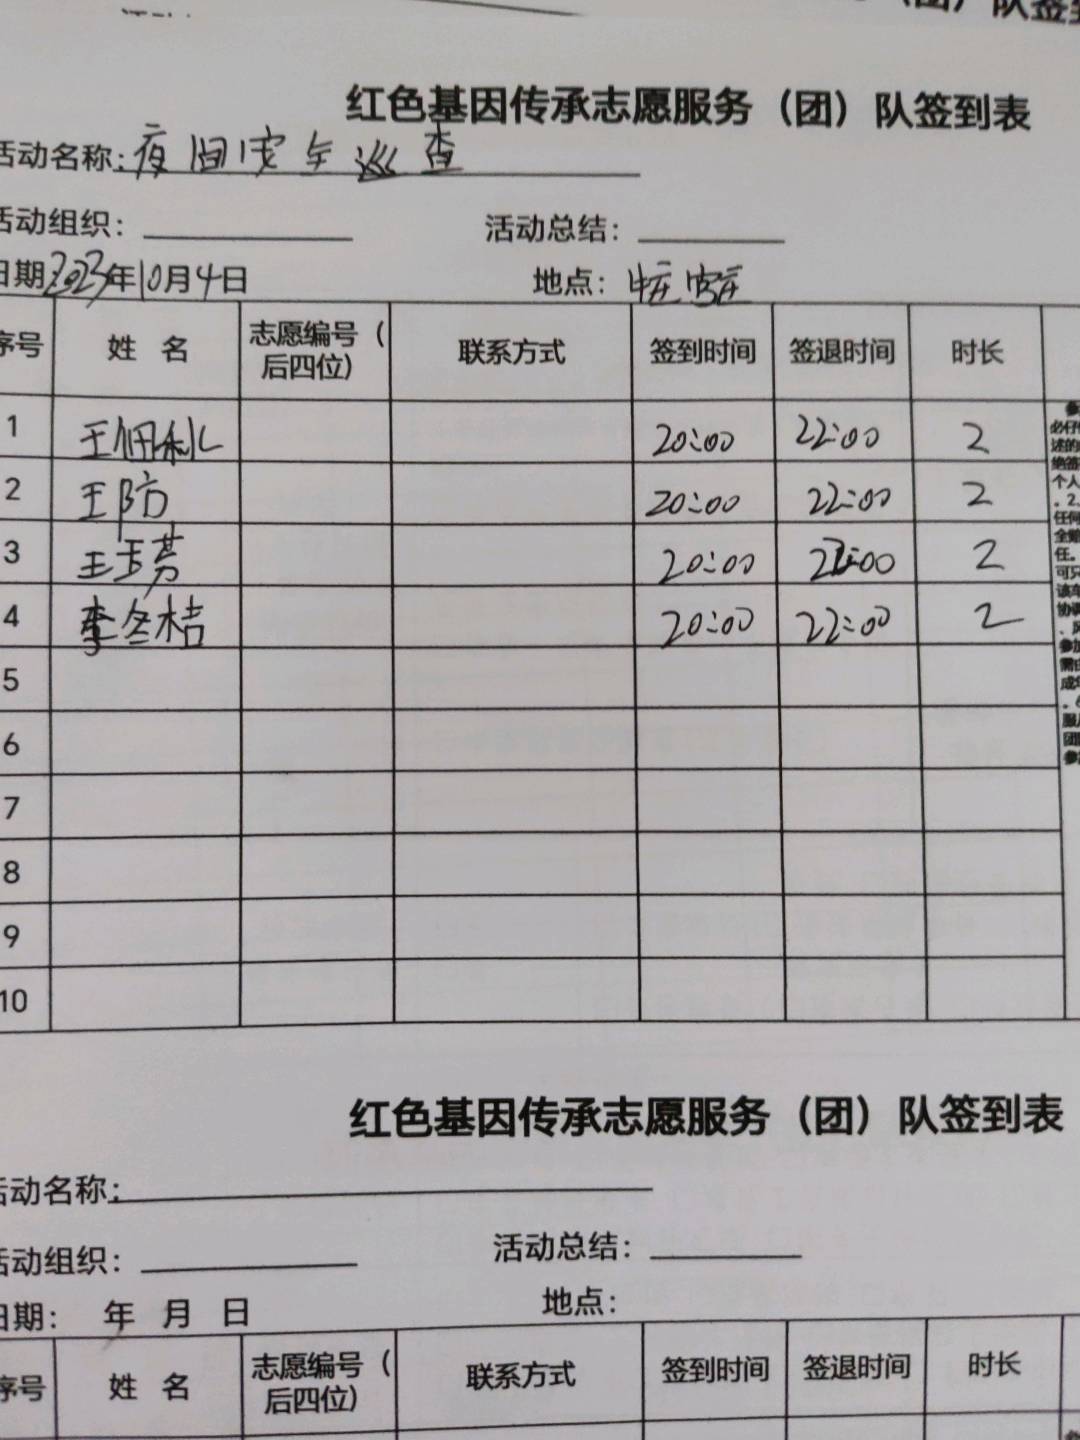 红色基因传承志愿服务（团）队签到表
活动名称：夜间安全巡查
活动组织：
活动总结：
日期2023年10月4日
地点：
序号 姓名 志愿编号（后四位） 联系方式 签到时间 签退时间 时长
1 王佣利 20:00 22:00 2
2 王防 20:00 22:00 2
3 王玉芬 20:00 22:00 2
4 李冬桔 20:00 22:00 2
5
6
7
8
9
10
红色基因传承志愿服务（团）队签到表
活动名称：
活动组织：
活动总结：
日期： 年 月 日
地点：
序号 姓名 志愿编号（后四位） 联系方式 签到时间 签退时间 时长